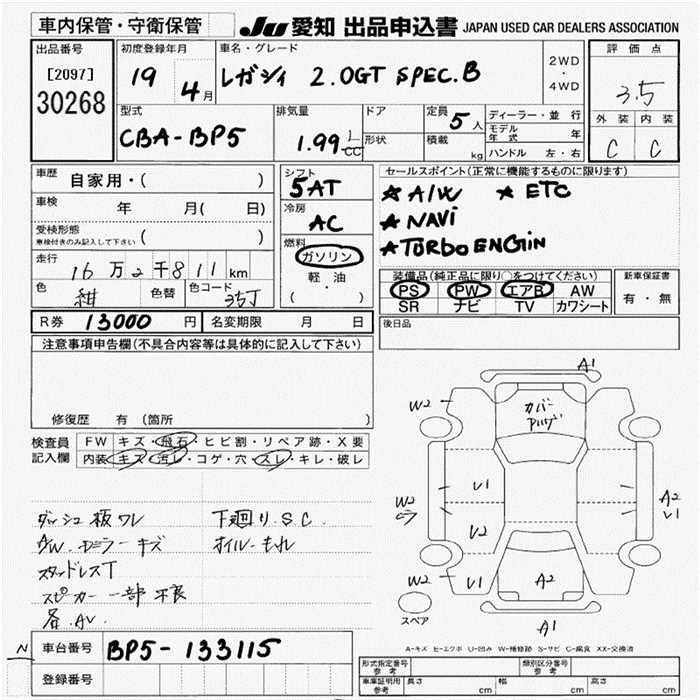 車内保管・守衛保管
JU 愛知 出品申込書 JAPAN USED CAR DEALERS ASSOCIATION
出品番号
[2097]
30268
初度登録年月
19 4月
車名・グレード
レガシィ 2.0GT SPEC.B
2WD
・
4WD
評価点
3.5
外装 内装
C C
型式
CBA-BP5
排気量
1.99 L
CC
ドア
形状
定員
5人
積載
kg
ディーラー・並行
モデル年式 年
ハンドル 左・右
車歴
自家用・( )
車検 年 月( 日)
受検形態
車検付きのみ記入して下さい ( )
走行 16万2千811km
色 紺 色替 色コード 35J
シフト
5AT
冷房
AC
燃料
ガソリン
軽・油
( )
セールスポイント(正常に機能するものに限ります)
★ A/W ★ ETC
★ NAVi
★ TURBO ENGIN
装備品(純正品に限り○をつけてください)
PS PW エアB AW
SR ナビ TV カワシート
新車保証書
有・無
R券 13000円 名変期限 月 日
後日品
注意事項申告欄(不具合内容等は具体的に記入して下さい)
修復歴 有(箇所 )
検査員
記入欄
FW キズ・飛石・ヒビ割・リペア跡・X要
内装 キズ・汚レ・コゲ・穴・スレ・キレ・破レ
ダッシュ板ワレ 下廻り.S.C.
AW.ミラーキズ オイルもれ
スタッドレスT
スピカー一部不良
各.AV.
A1
W2
カバー
W2
V1
A2
V1
V2
W2
V1
A2
A1
スペア
A-キズ E-エクボ U-凹み W-補修跡 S-サビ C-腐食 XX-交換済
N
車台番号 BP5-133115
登録番号
形式指定番号
参考
類別区分番号
参考
車庫証明用
参考
長さ cm 幅 cm 高さ cm